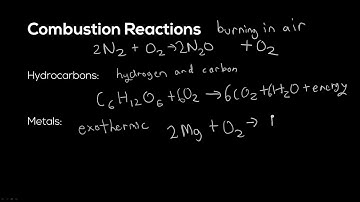 Combustion Reactions burning in air
2N₂ + O₂ → 2N₂O + O₂
Hydrocarbons: hydrogen and carbon
C₆H₁₂O₆ + 6O₂ → 6CO₂ + 6H₂O + energy
Metals: exothermic 2Mg + O₂ →